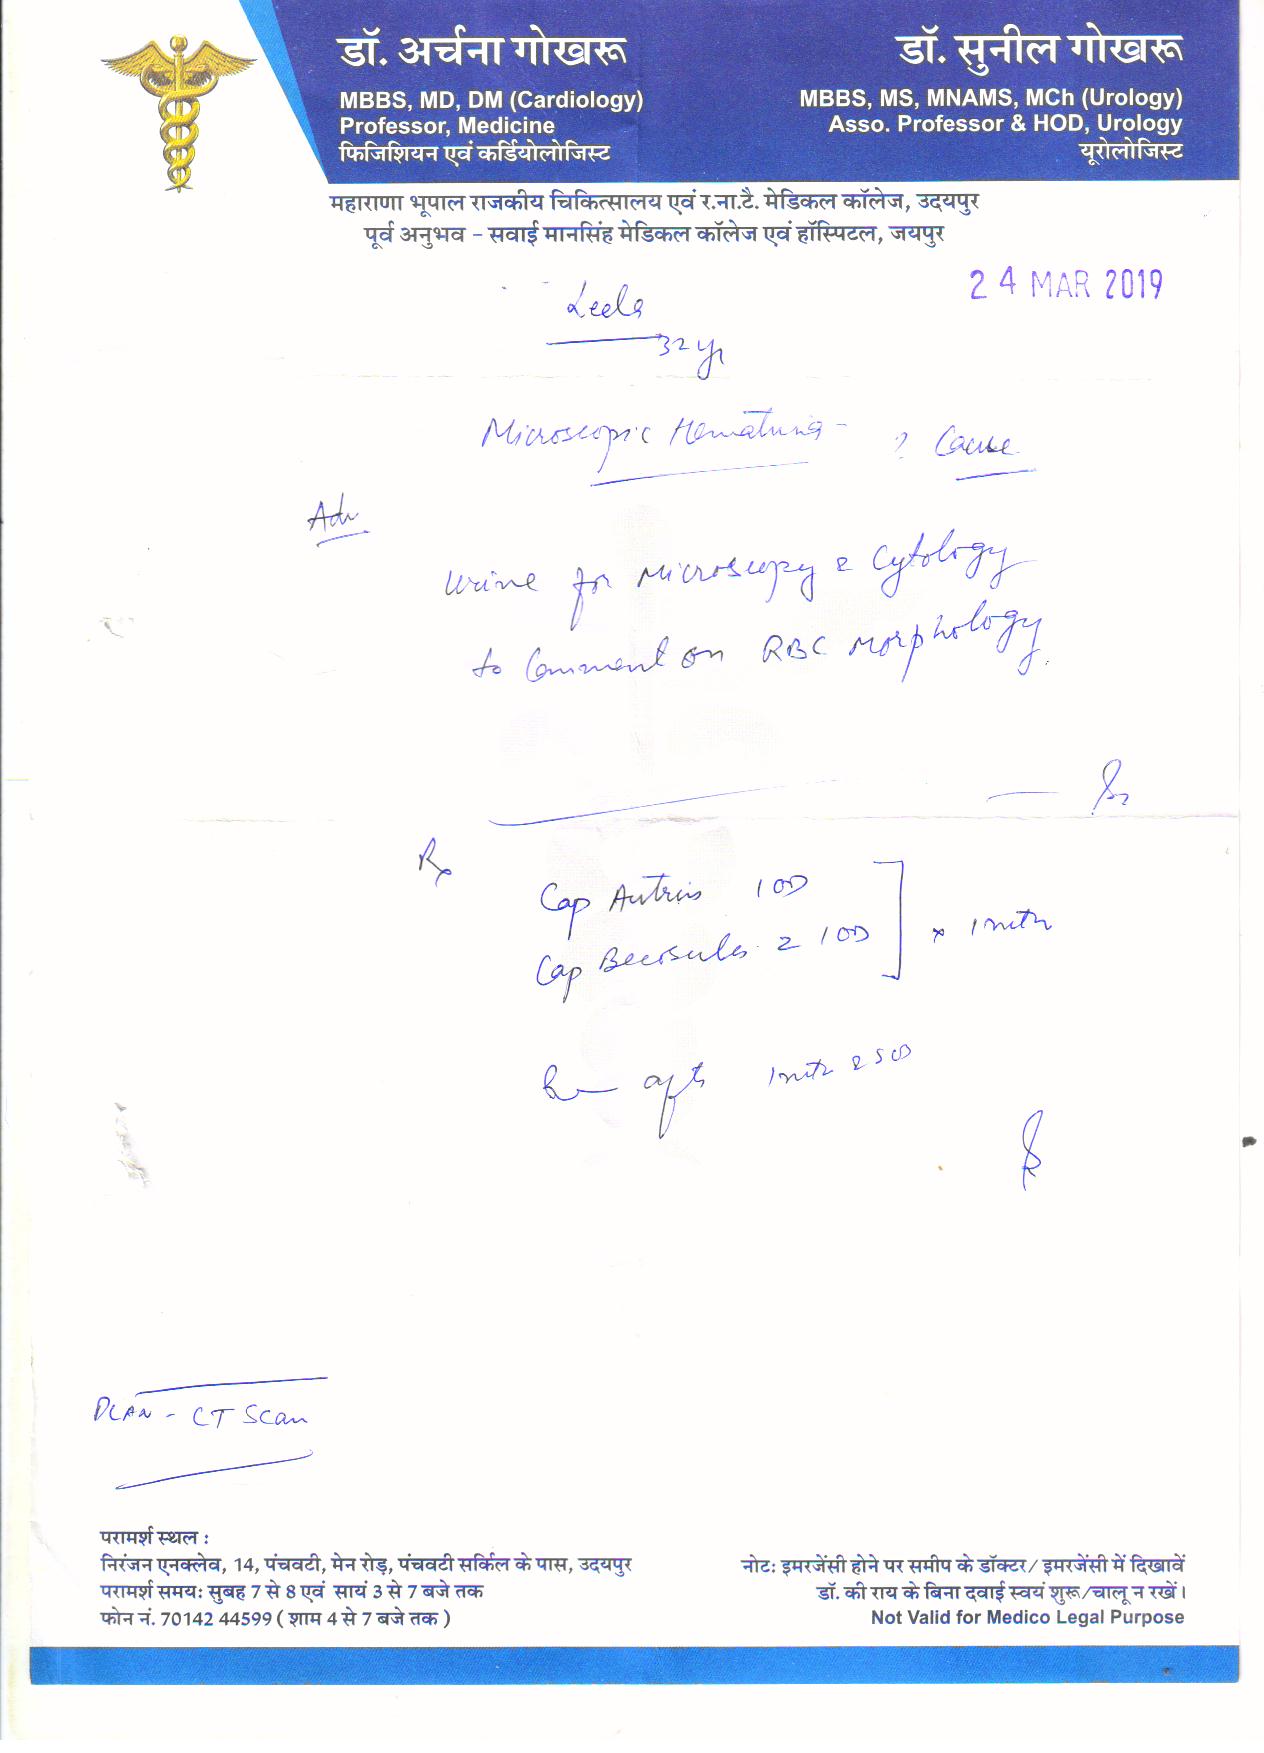 डॉ. अर्चना गोखरू
MBBS, MD, DM (Cardiology)
Professor, Medicine
फिजिशियन एवं कर्डियोलोजिस्ट
डॉ. सुनील गोखरू
MBBS, MS, MNAMS, MCh (Urology)
Asso. Professor & HOD, Urology
यूरोलोजिस्ट
महाराणा भूपाल राजकीय चिकित्सालय एवं र.ना.टै. मेडिकल कॉलेज, उदयपुर
पूर्व अनुभव - सवाई मानसिंह मेडिकल कॉलेज एवं हॉस्पिटल, जयपुर
24 MAR 2019
Leela
32 yr
Microscopic Hematuria - ? Cause
Adv
Urine for Microscopy & Cytology
to Comment on RBC Morphology.
Rx
Cap Autrin 1 OD
Cap Becosules Z 1 OD
x 1 mth
1 mth
PLAN - CT Scan
परामर्श स्थल :
निरंजन एनक्लेव, 14, पंचवटी, मेन रोड़, पंचवटी सर्किल के पास, उदयपुर
परामर्श समय: सुबह 7 से 8 एवं सायं 3 से 7 बजे तक
फोन नं. 70142 44599 ( शाम 4 से 7 बजे तक )
नोट: इमरजेंसी होने पर समीप के डॉक्टर/ इमरजेंसी में दिखावें
डॉ. की राय के बिना दवाई स्वयं शुरू/चालू न रखें।
Not Valid for Medico Legal Purpose